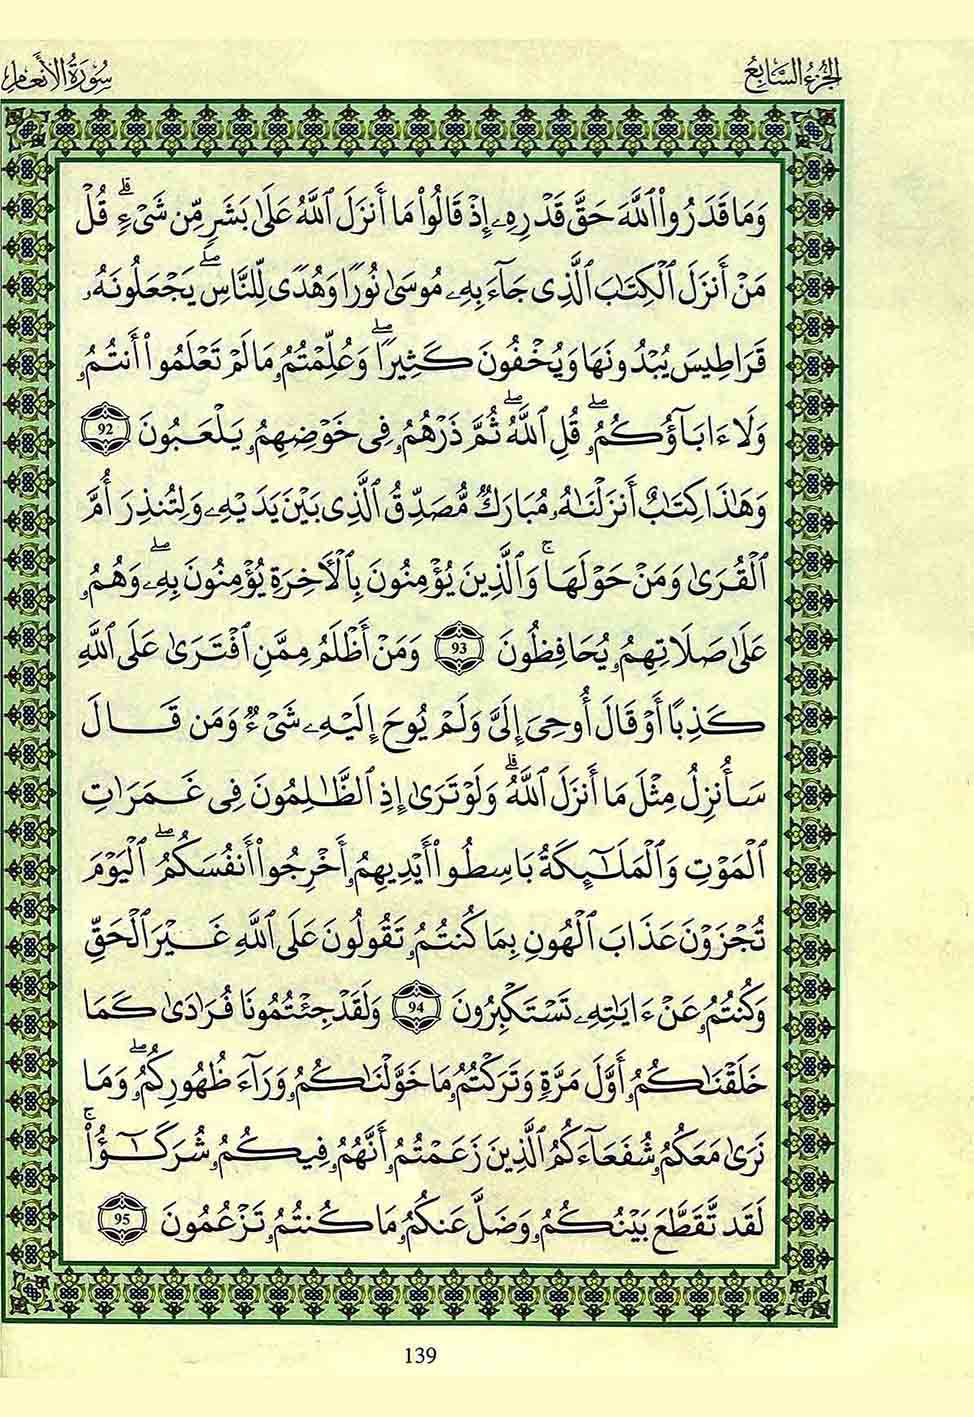 الجُزءُ السَّابِعُ
سُورَةُ الأَنْعَامِ
وَمَا قَدَرُوا۟ ٱللَّهَ حَقَّ قَدْرِهِۦ إِذْ قَالُوا۟ مَا أَنزَلَ ٱللَّهُ عَلَىٰ بَشَرٍ مِّن شَىْءٍ ۗ قُلْ
مَنْ أَنزَلَ ٱلْكِتَٰبَ ٱلَّذِى جَآءَ بِهِۦ مُوسَىٰ نُورًا وَهُدًى لِّلنَّاسِ ۖ يَجْعَلُونَهُۥ
قَرَاطِيسَ يُبْدُونَهَا وَيُخْفُونَ كَثِيرًا ۖ وَعُلِّمْتُمُۥ مَا لَمْ تَعْلَمُوا۟ أَنتُمُۥ
وَلَا ءَابَآؤُكُمُۥ ۖ قُلِ ٱللَّهُ ۖ ثُمَّ ذَرْهُمُۥ فِى خَوْضِهِمُۥ يَلْعَبُونَ 92
وَهَٰذَا كِتَٰبٌ أَنزَلْنَٰهُۥ مُبَارَكٌ مُّصَدِّقُ ٱلَّذِى بَيْنَ يَدَيْهِۦ وَلِتُنذِرَ أُمَّ
ٱلْقُرَىٰ وَمَنْ حَوْلَهَا ۚ وَٱلَّذِينَ يُؤْمِنُونَ بِٱلْأَخِرَةِ يُؤْمِنُونَ بِهِۦ ۖ وَهُمُۥ
عَلَىٰ صَلَاتِهِمُۥ يُحَافِظُونَ 93 وَمَنْ أَظْلَمُ مِمَّنِ ٱفْتَرَىٰ عَلَى ٱللَّهِ
كَذِبًا أَوْ قَالَ أُوحِىَ إِلَىَّ وَلَمْ يُوحَ إِلَيْهِۦ شَىْءٌ وَمَن قَالَ
سَأُنزِلُ مِثْلَ مَا أَنزَلَ ٱللَّهُ ۗ وَلَوْ تَرَىٰ إِذِ ٱلظَّٰلِمُونَ فِى غَمَرَٰتِ
ٱلْمَوْتِ وَٱلْمَلَٰٓئِكَةُ بَاسِطُوا۟ أَيْدِيهِمُۥ أَخْرِجُوا۟ أَنفُسَكُمُ ۖ ٱلْيَوْمَ
تُجْزَوْنَ عَذَابَ ٱلْهُونِ بِمَا كُنتُمُۥ تَقُولُونَ عَلَى ٱللَّهِ غَيْرَ ٱلْحَقِّ
وَكُنتُمُۥ عَنْ ءَايَٰتِهِۦ تَسْتَكْبِرُونَ 94 وَلَقَدْ جِئْتُمُونَا فُرَٰدَىٰ كَمَا
خَلَقْنَٰكُمُۥ أَوَّلَ مَرَّةٍ وَتَرَكْتُمُۥ مَا خَوَّلْنَٰكُمُۥ وَرَآءَ ظُهُورِكُمُۥ ۖ وَمَا
نَرَىٰ مَعَكُمُۥ شُفَعَآءَكُمُ ٱلَّذِينَ زَعَمْتُمُۥ أَنَّهُمُۥ فِيكُمُۥ شُرَكَٰٓؤُا۟ ۚ
لَقَد تَّقَطَّعَ بَيْنُكُمُۥ وَضَلَّ عَنكُمُۥ مَا كُنتُمُۥ تَزْعُمُونَ 95
139